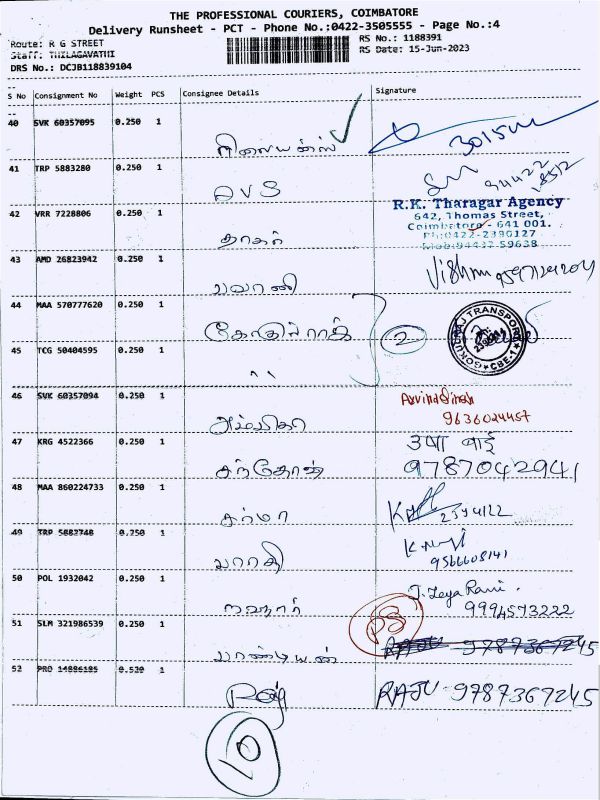 THE PROFESSIONAL COURIERS, COIMBATORE
Delivery Runsheet - PCT - Phone No.:0422-3505555 - Page No.:4
Route: R G STREET
Staff: THILAGAVATHI
DRS No.: DCJB118839104
RS No.: 1188391
RS Date: 15-Jun-2023
S No Consignment No Weight PCS Consignee Details Signature
40 SVK 60357095 0.250 1
41 TRP 5883280 0.250 1 AVS
R.K. Tharagar Agency
642, Thomas Street,
Coimbatore - 641 001.
Ph:0422-2390127
Mob:94437-59638
42 VRR 7228806 0.250 1 தாகர்
43 AMD 26823942 0.250 1 பவானி
44 MAA 570777620 0.250 1 கோகுல்ராஜ் 2
GOKULRAJ TRANSPORT CBE-1
45 TCG 50404595 0.250 1 "
46 SVK 60357094 0.250 1 அம்பிகா 9636024457
47 KRG 4522366 0.250 1 சந்தோஷ் 9787042941
48 MAA 860224733 0.250 1 சர்மா
49 TRP 5882748 0.250 1 பாரதி 9566608141
50 POL 1932042 0.250 1 J. Jeya Rani. 9994573222
51 SLM 321986539 0.250 1 பாண்டியன் RAJU 9787367245
52 PRO 14896185 0.522 1 RAJU 9787367245
10